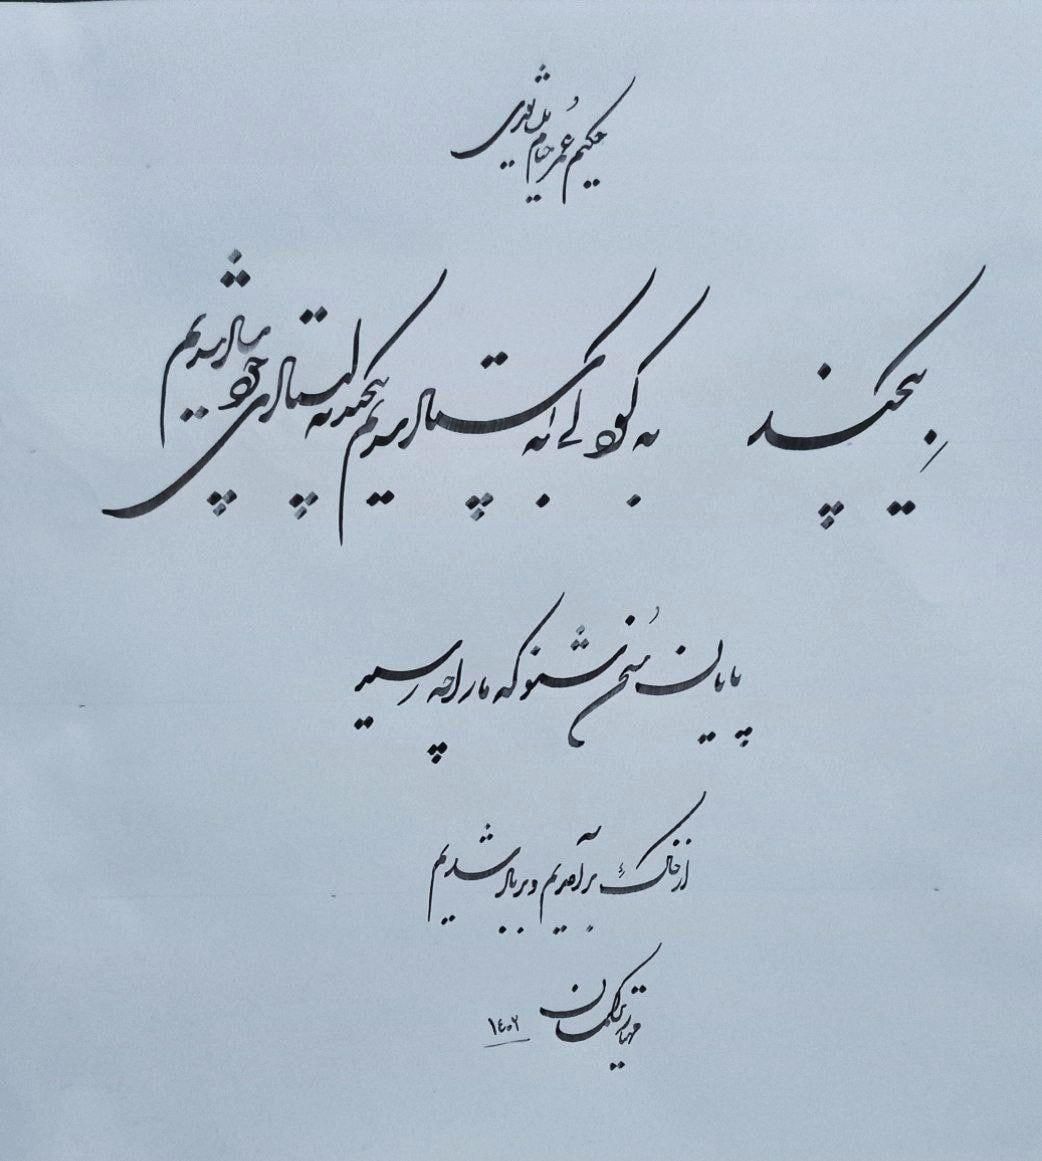 حکیم عُمر خیام نیشابوری
یک چند به کودکی به استاد شدیم یک چند به استادی خود شاد شدیم
پایان سُخن شنو که ما را چه رسید
از خاک برآمدیم و بر باد شدیم
مهیار ترکمان ۱۴۰۲